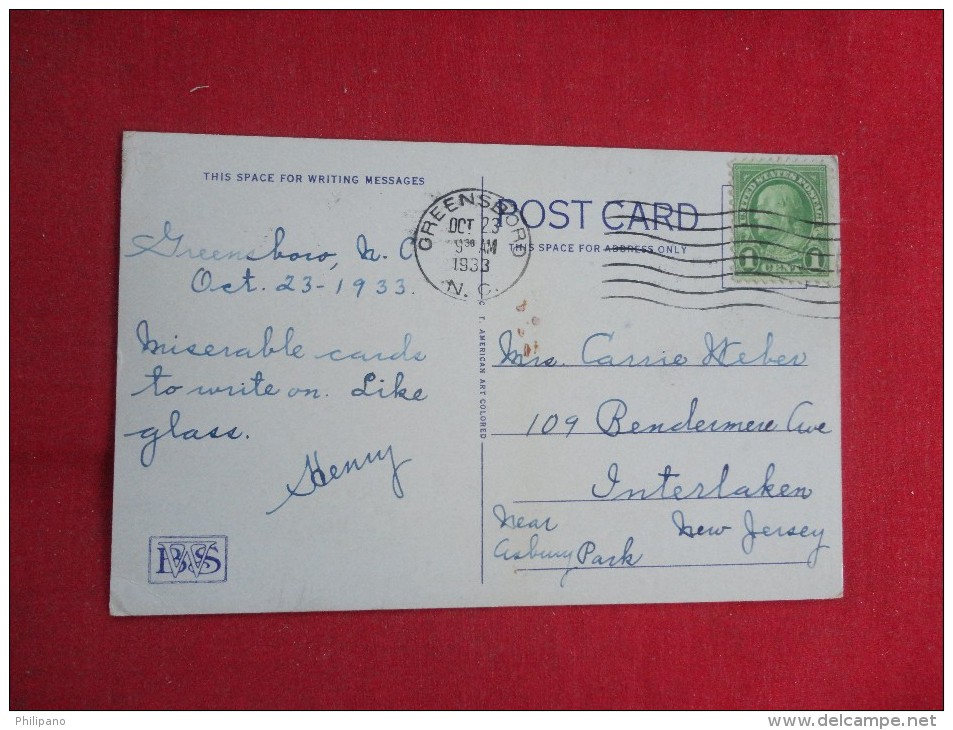 THIS SPACE FOR WRITING MESSAGES
Greensboro, N. C
Oct. 23-1933.
Miserable cards
to write on. Like
glass.
Henry
BWS
GREENSBORO
OCT 23
9 30 AM
1933
N. C.
C. T. AMERICAN ART COLORED
POST CARD
THIS SPACE FOR ADDRESS ONLY
UNITED STATES POSTAGE
1 CENT 1
Mrs. Carrie Heber
109 Bendermere Ave
Interlaken
New Jersey
Near
Asbury Park
Philipano
www.delcampe.net